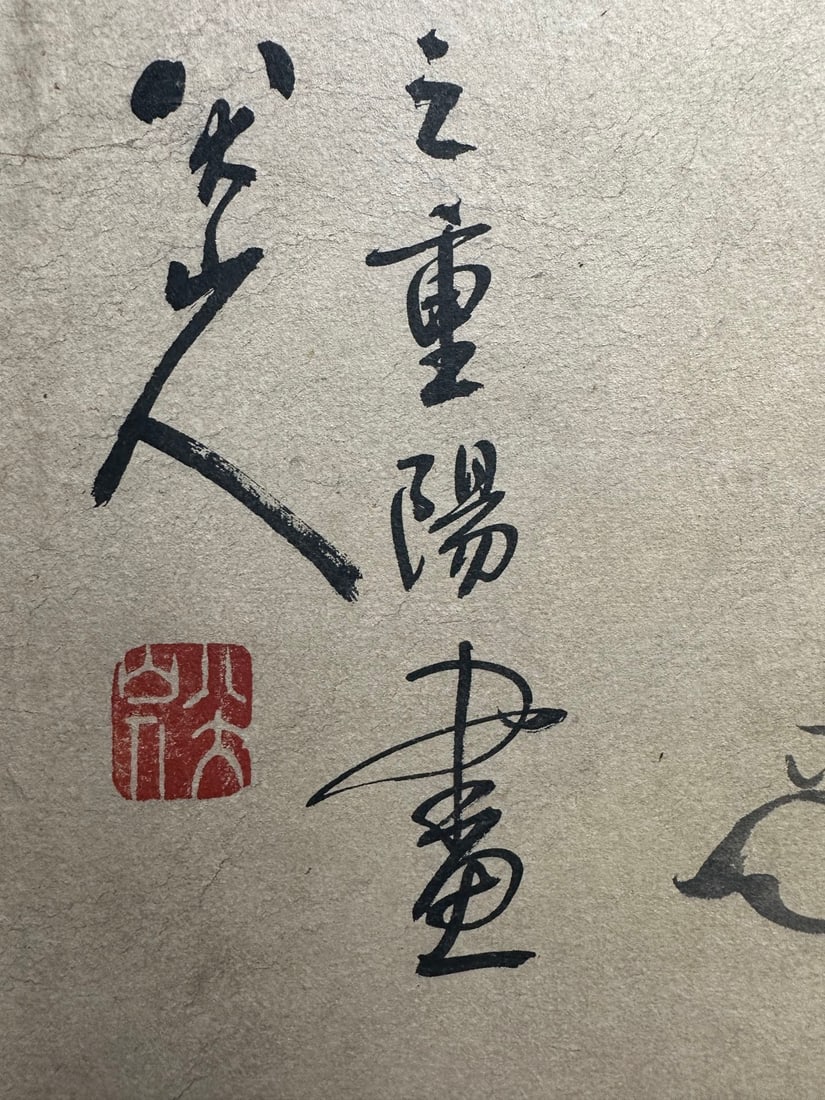 之重陽畫
八大山人
八大山人